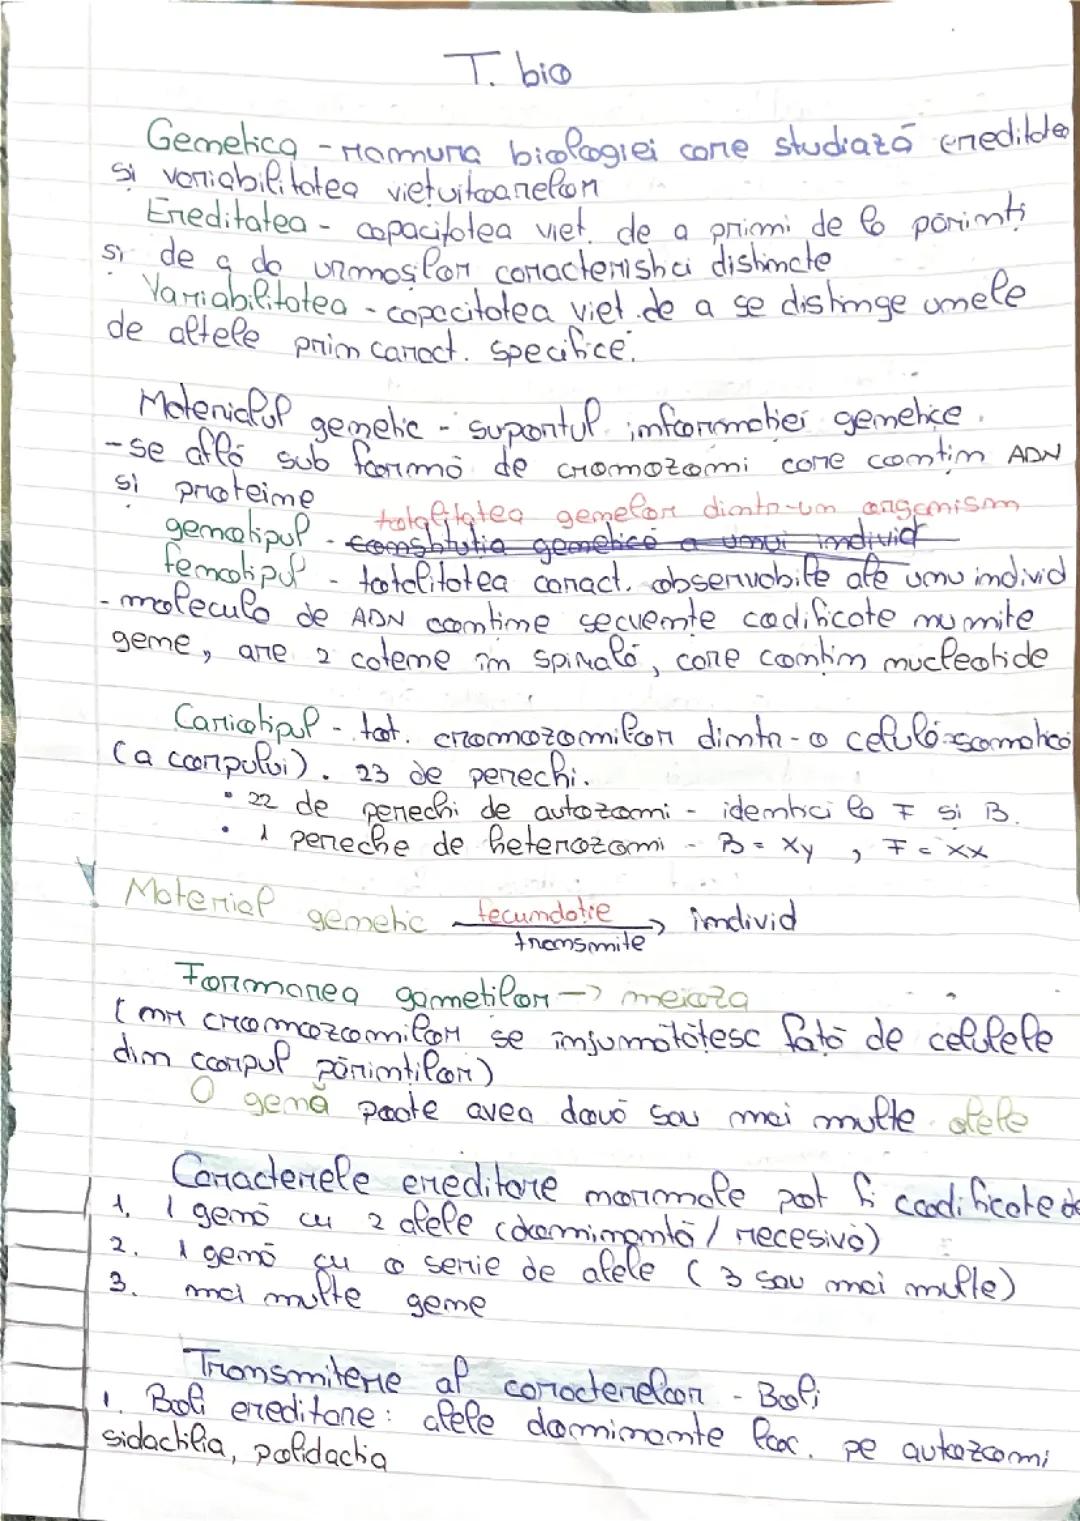 T. bio
Genetica - ramura biologiei care studiază ereditatea
și variabilitatea viețuitoarelor
Ereditatea - capacitatea viet. de a primi de la părinți
și de a da urmașilor caracteristici distincte
Variabilitatea - capacitatea viet. de a se distinge unele
de altele prin caract. specifice.
Materialul genetic - suportul informației genetice.
- se află sub formă de cromozomi care conțin ADN
și proteine
totalitatea genelor dintr-un organism
genotipul - constituția genetică a unui individ
fenotipul - totalitatea caract. observabile ale unu individ
- molecula de ADN contine secvente codificate numite
gene, are 2 catene în spirală, care conțin nucleotide
Cariotipul - tot. cromozomilor dintr-o celulă somatică
(a corpului). 23 de perechi.
• 22 de perechi de autozomi - identici la F și B.
• 1 pereche de heterozomi - B = Xy , F = XX
Material genetic fecundație → individ
transmite
Formarea gameților → meioza
(nr cromozomilor se înjumătățesc față de celulele
din corpul părinților)
O genă poate avea două sau mai multe alele
Caracterele ereditare normale pot fi codificate de
1. 1 genă cu 2 alele (dominantă / recesivă)
2. 1 genă cu o serie de alele (3 sau mai multe)
3. mai multe gene
Transmitere al caracterelor - Boli
1. Boli ereditare: alele dominante loc. pe autozomi
sidactilia, polidactia